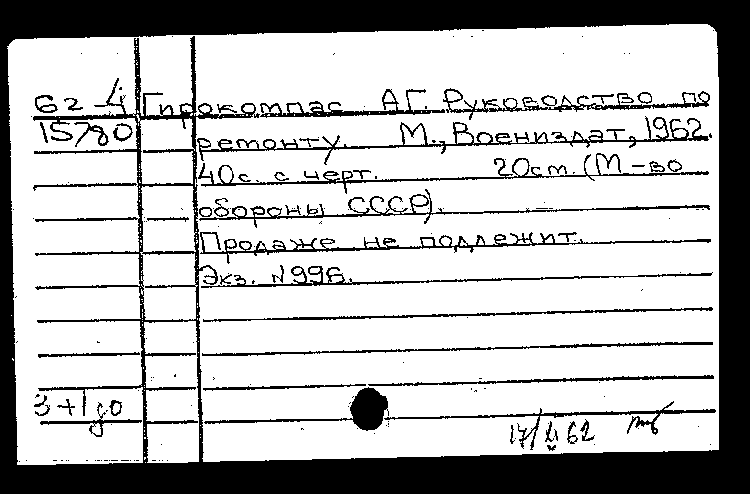 6г-4 Гирокомпас АГ. Руководство по
15780 ремонту. М., Воениздат, 1962.
40с. с черт. 20см. (М-во
обороны СССР).
Продаже не подлежит.
Экз. N996.
3+1до
17/ 62